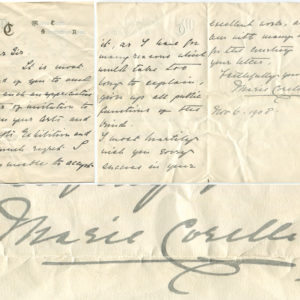 Dear Sir
It is most
kind of you to send
such an appreciative
of invitation to
your Arts and
Exhibition and
much regret I
unable to accept
it, as I have for
many reasons which
would take too
long to explain,
given up all public
functions of the
kind.
I most heartily
wish you every
success in your
excellent work, &
am with many
for the courtesy
your letter,
Faithfully yours
Marie Corelli
Nov 6. 1908
Marie Corelli